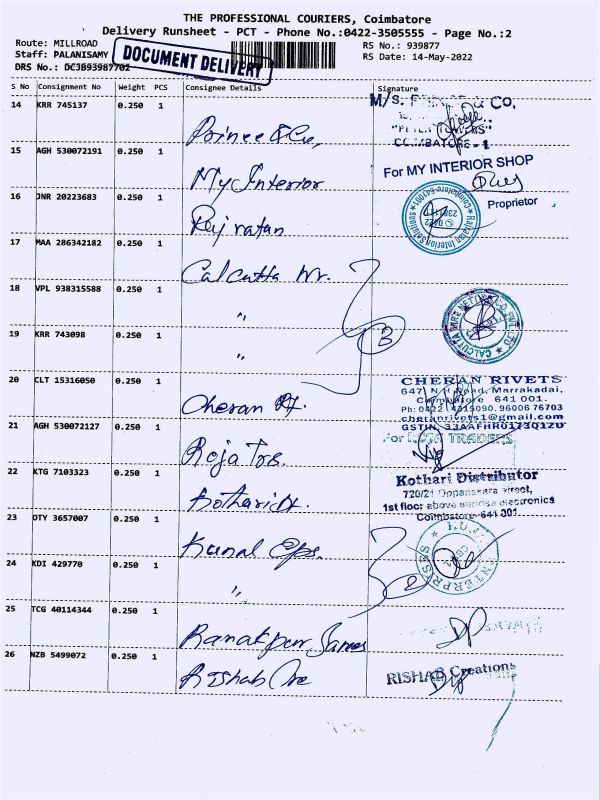 THE PROFESSIONAL COURIERS, Coimbatore
Delivery Runsheet - PCT - Phone No.:0422-3505555 - Page No.:2
Route: MILLROAD RS No.: 939877
Staff: PALANISAMY RS Date: 14-May-2022
DRS No.: DCJB93987702
DOCUMENT DELIVERY
S No Consignment No Weight PCS Consignee Details Signature
14 KRR 745137 0.250 1
Prince & Co,
M/S. PRINCE & CO,
COIMBATORE - 1
15 AGH 530072191 0.250 1
My Interior
For MY INTERIOR SHOP
Proprietor
16 JNR 20223683 0.250 1
Raj ratan
17 MAA 286342182 0.250 1
Calcutta
18 VPL 938315588 0.250 1
"
3
19 KRR 743098 0.250 1
"
20 CLT 15316050 0.250 1
Cheran
CHERAN RIVETS
647, N H Road, Marrakadai,
Coimbatore 641 001.
Ph: 0422 4315090. 96006 76703
cheranrivets1@gmail.com
21 AGH 530072127 0.250 1
Roja Trs.
For ROJA TRADERS
22 KTG 7103323 0.250 1
Kothari
Kothari Distributor
720/21 Oppanakara street,
1st floor above sunrise electronics
Coimbatore-641 001
23 OTY 3657007 0.250 1
Kunal
24 KDI 429770 0.250 1
"
2
25 TCG 40114344 0.250 1
Ranakpur
26 NZB 5499072 0.250 1
Rishab Cre
RISHAB Creations